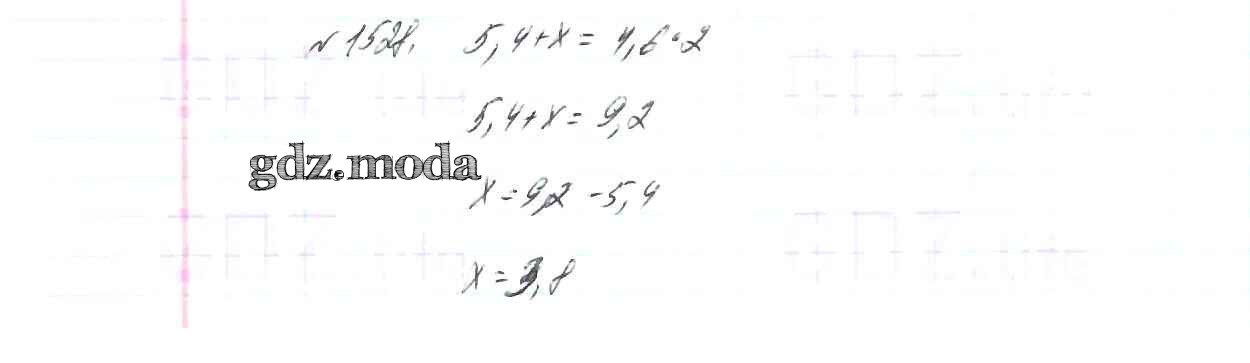 №1528. 5,4+x= 4,6·2
5,4+x= 9,2
gdz.moda
x=9,2 -5,4
x=3,8